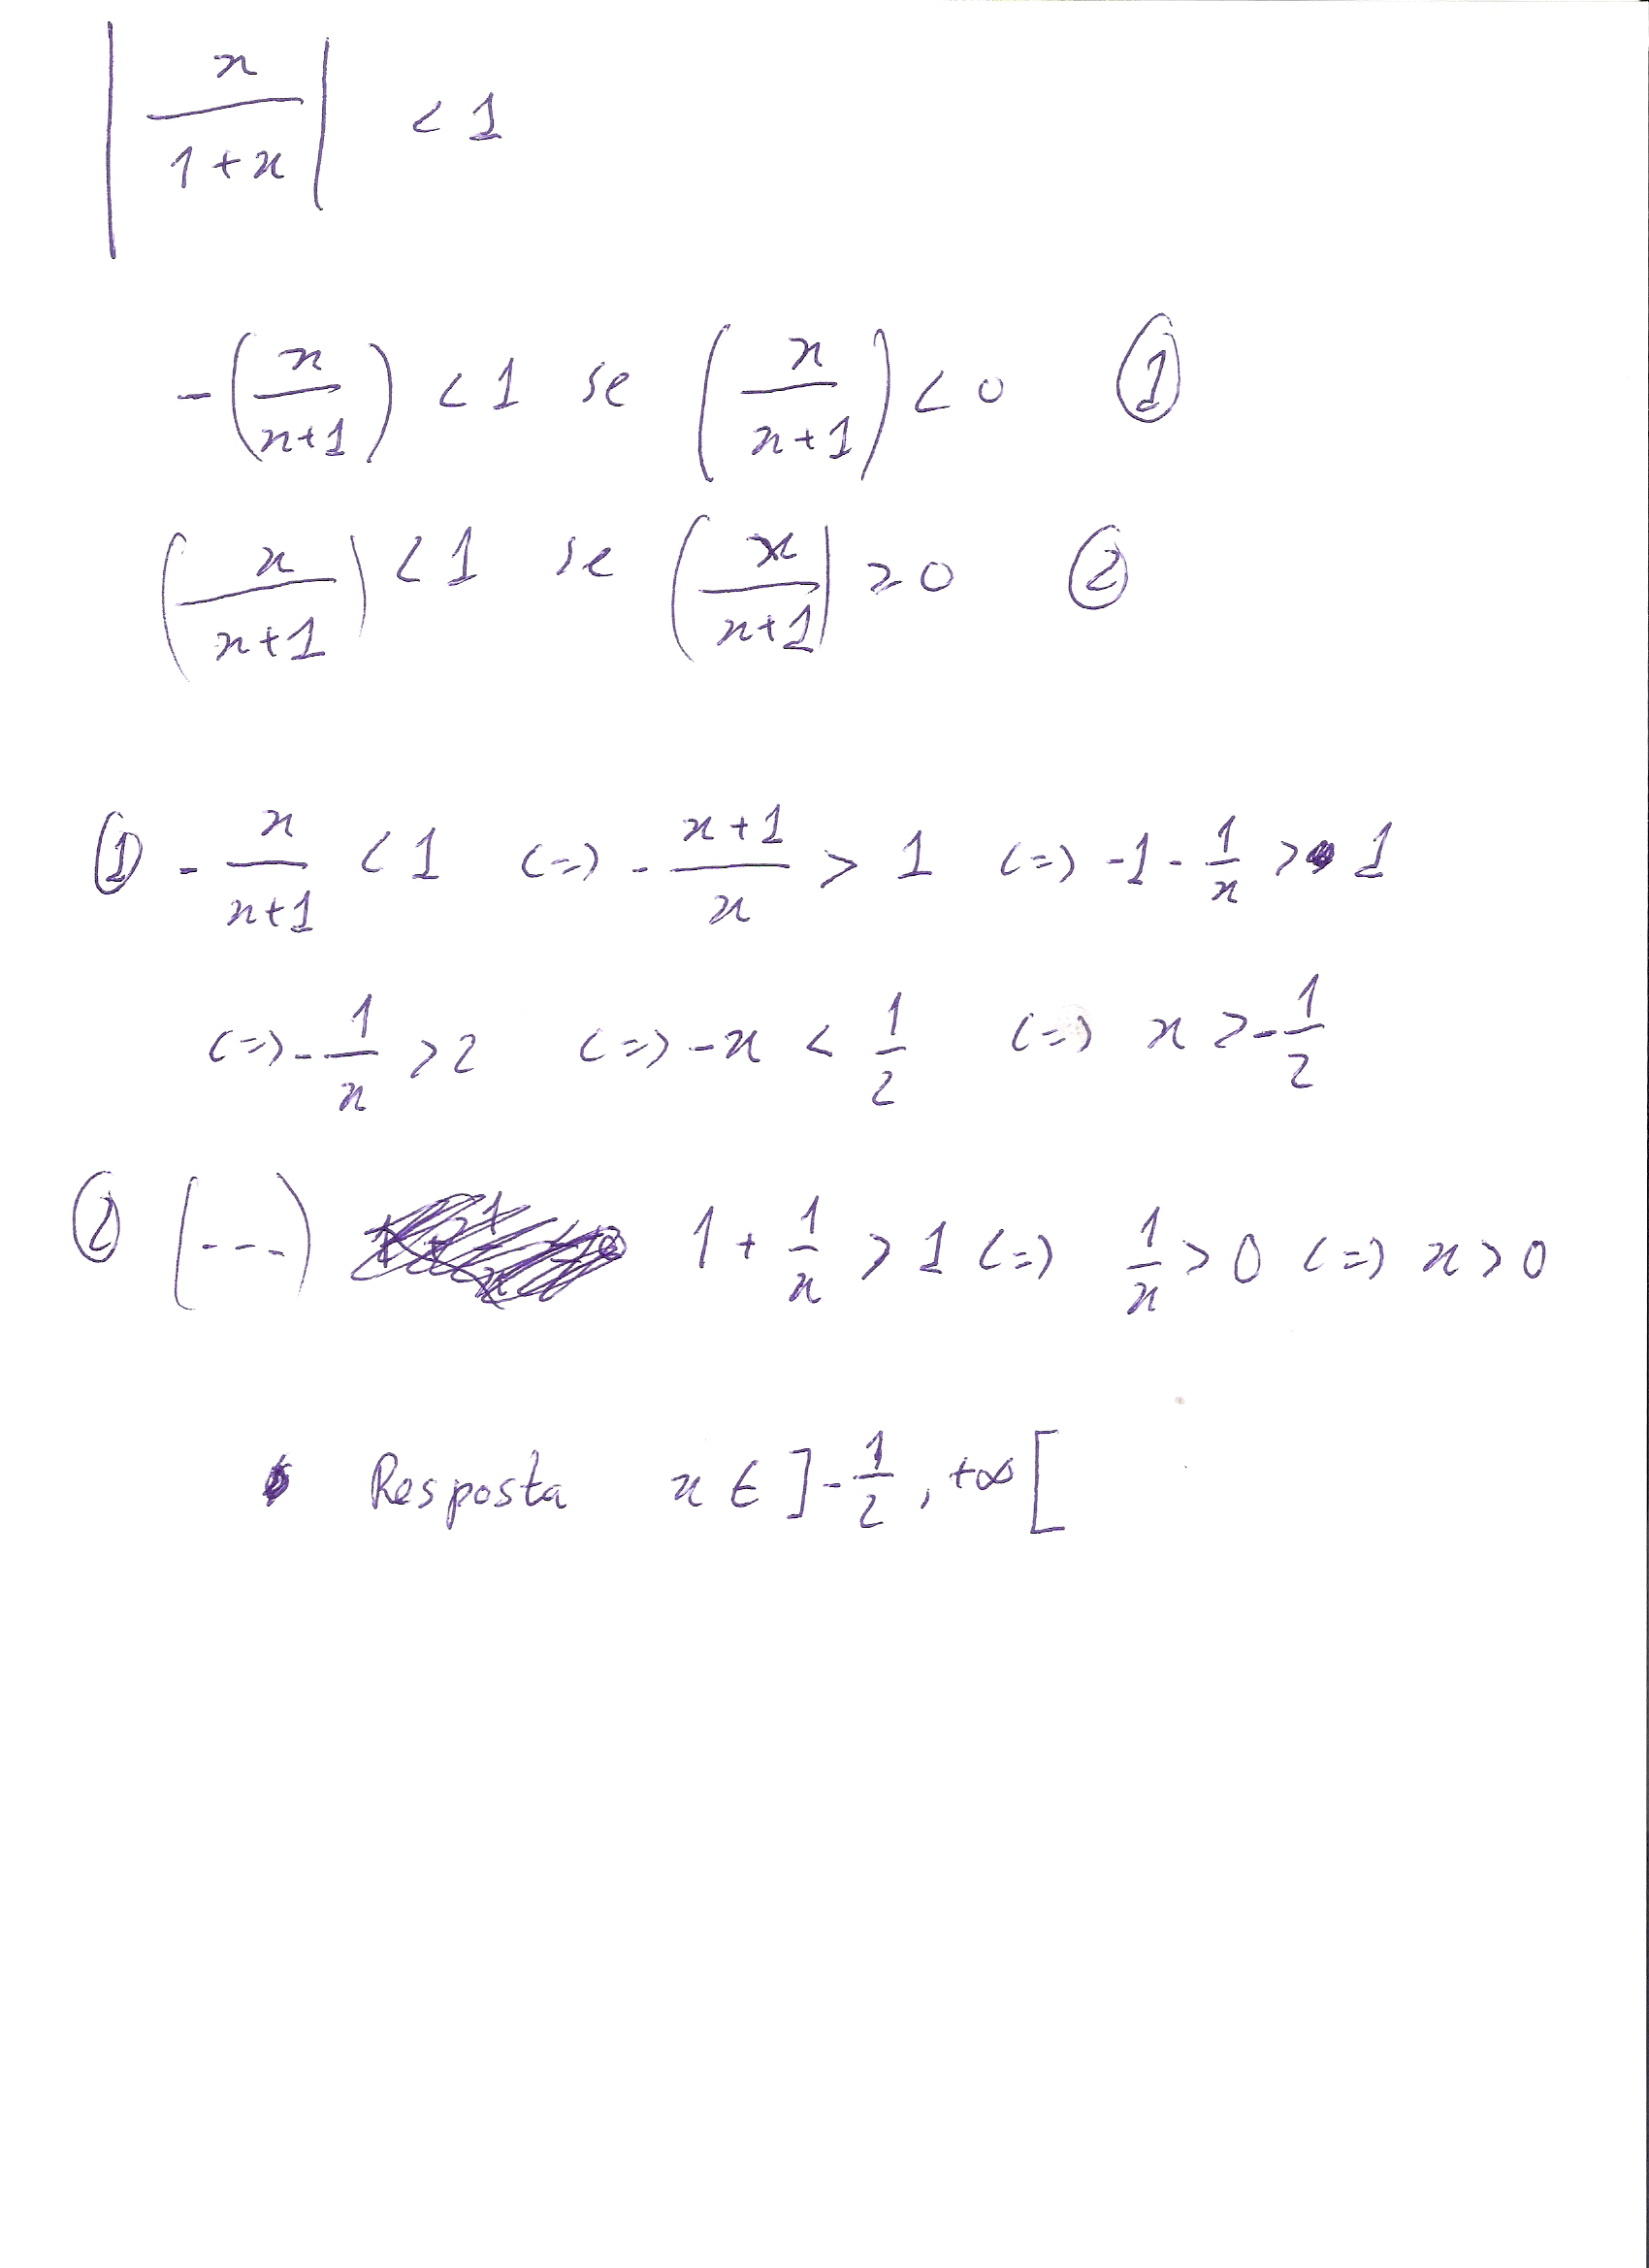 |x/(1+x)| < 1
-(x/(x+1)) < 1 se (x/(x+1)) < 0 ①
(x/(x+1)) < 1 se (x/(x+1)| ≥ 0 ②
① - x/(x+1) < 1 (=) - (x+1)/x > 1 (=) -1 - 1/x > 1
(=) - 1/x > 2 (=) -x < 1/2 (=) x > - 1/2
② (---) 1 + 1/x > 1 (=) 1/x > 0 (=) x > 0
Resposta x ∈ ]-1/2, +∞[